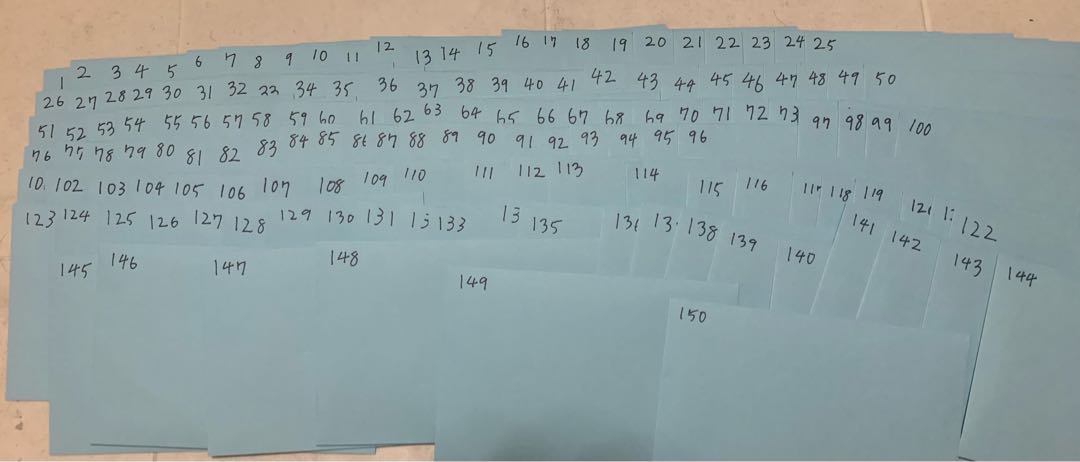 1 2 3 4 5 6 7 8 9 10 11 12 13 14 15 16 17 18 19 20 21 22 23 24 25
26 27 28 29 30 31 32 33 34 35 36 37 38 39 40 41 42 43 44 45 46 47 48 49 50
51 52 53 54 55 56 57 58 59 60 61 62 63 64 65 66 67 68 69 70 71 72 73 97 98 99 100
76 75 78 79 80 81 82 83 84 85 86 87 88 89 90 91 92 93 94 95 96
102 103 104 105 106 107 108 109 110 111 112 113 114 115 116 117 118 119 122
123 124 125 126 127 128 129 130 131 133 135 138 139 140 141 142 143 144
145 146 147 148
149
150